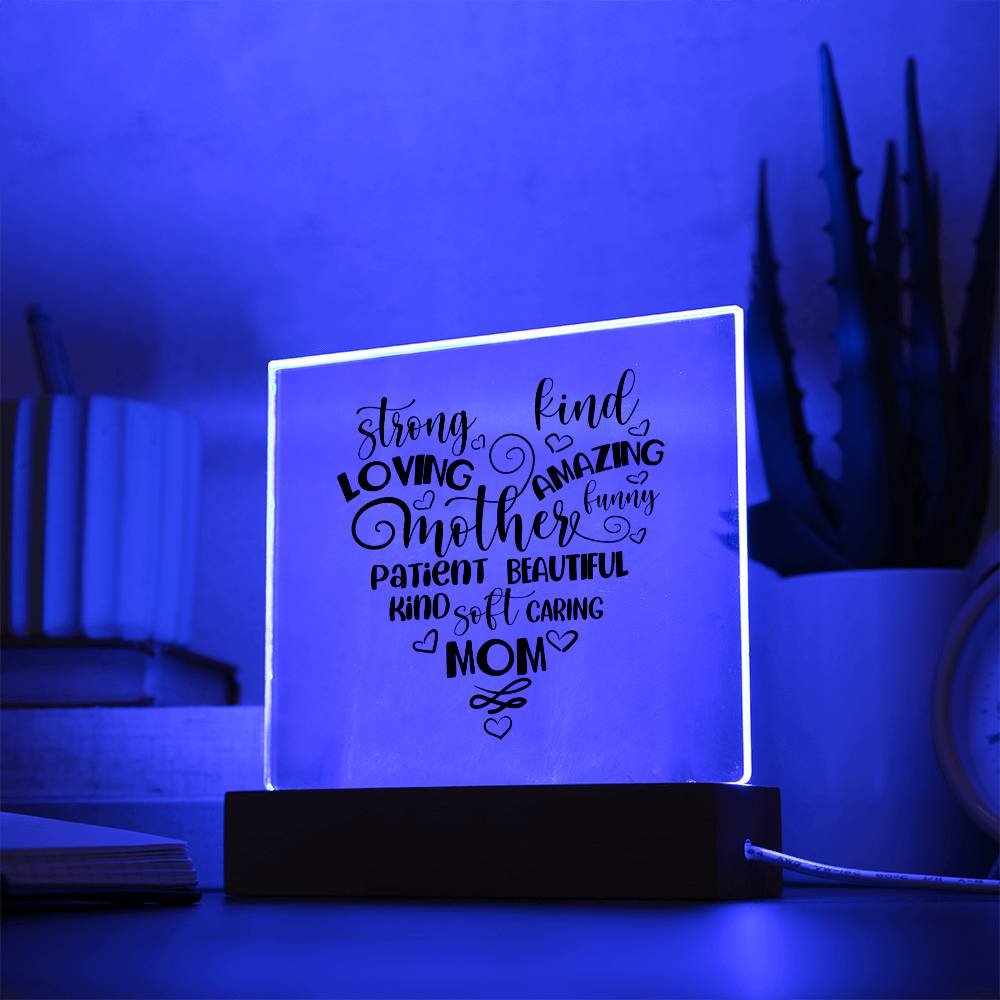 strong kind
LOVING AMAZING
mother funny
PATIENT BEAUTIFUL
KIND soft CARING
MOM